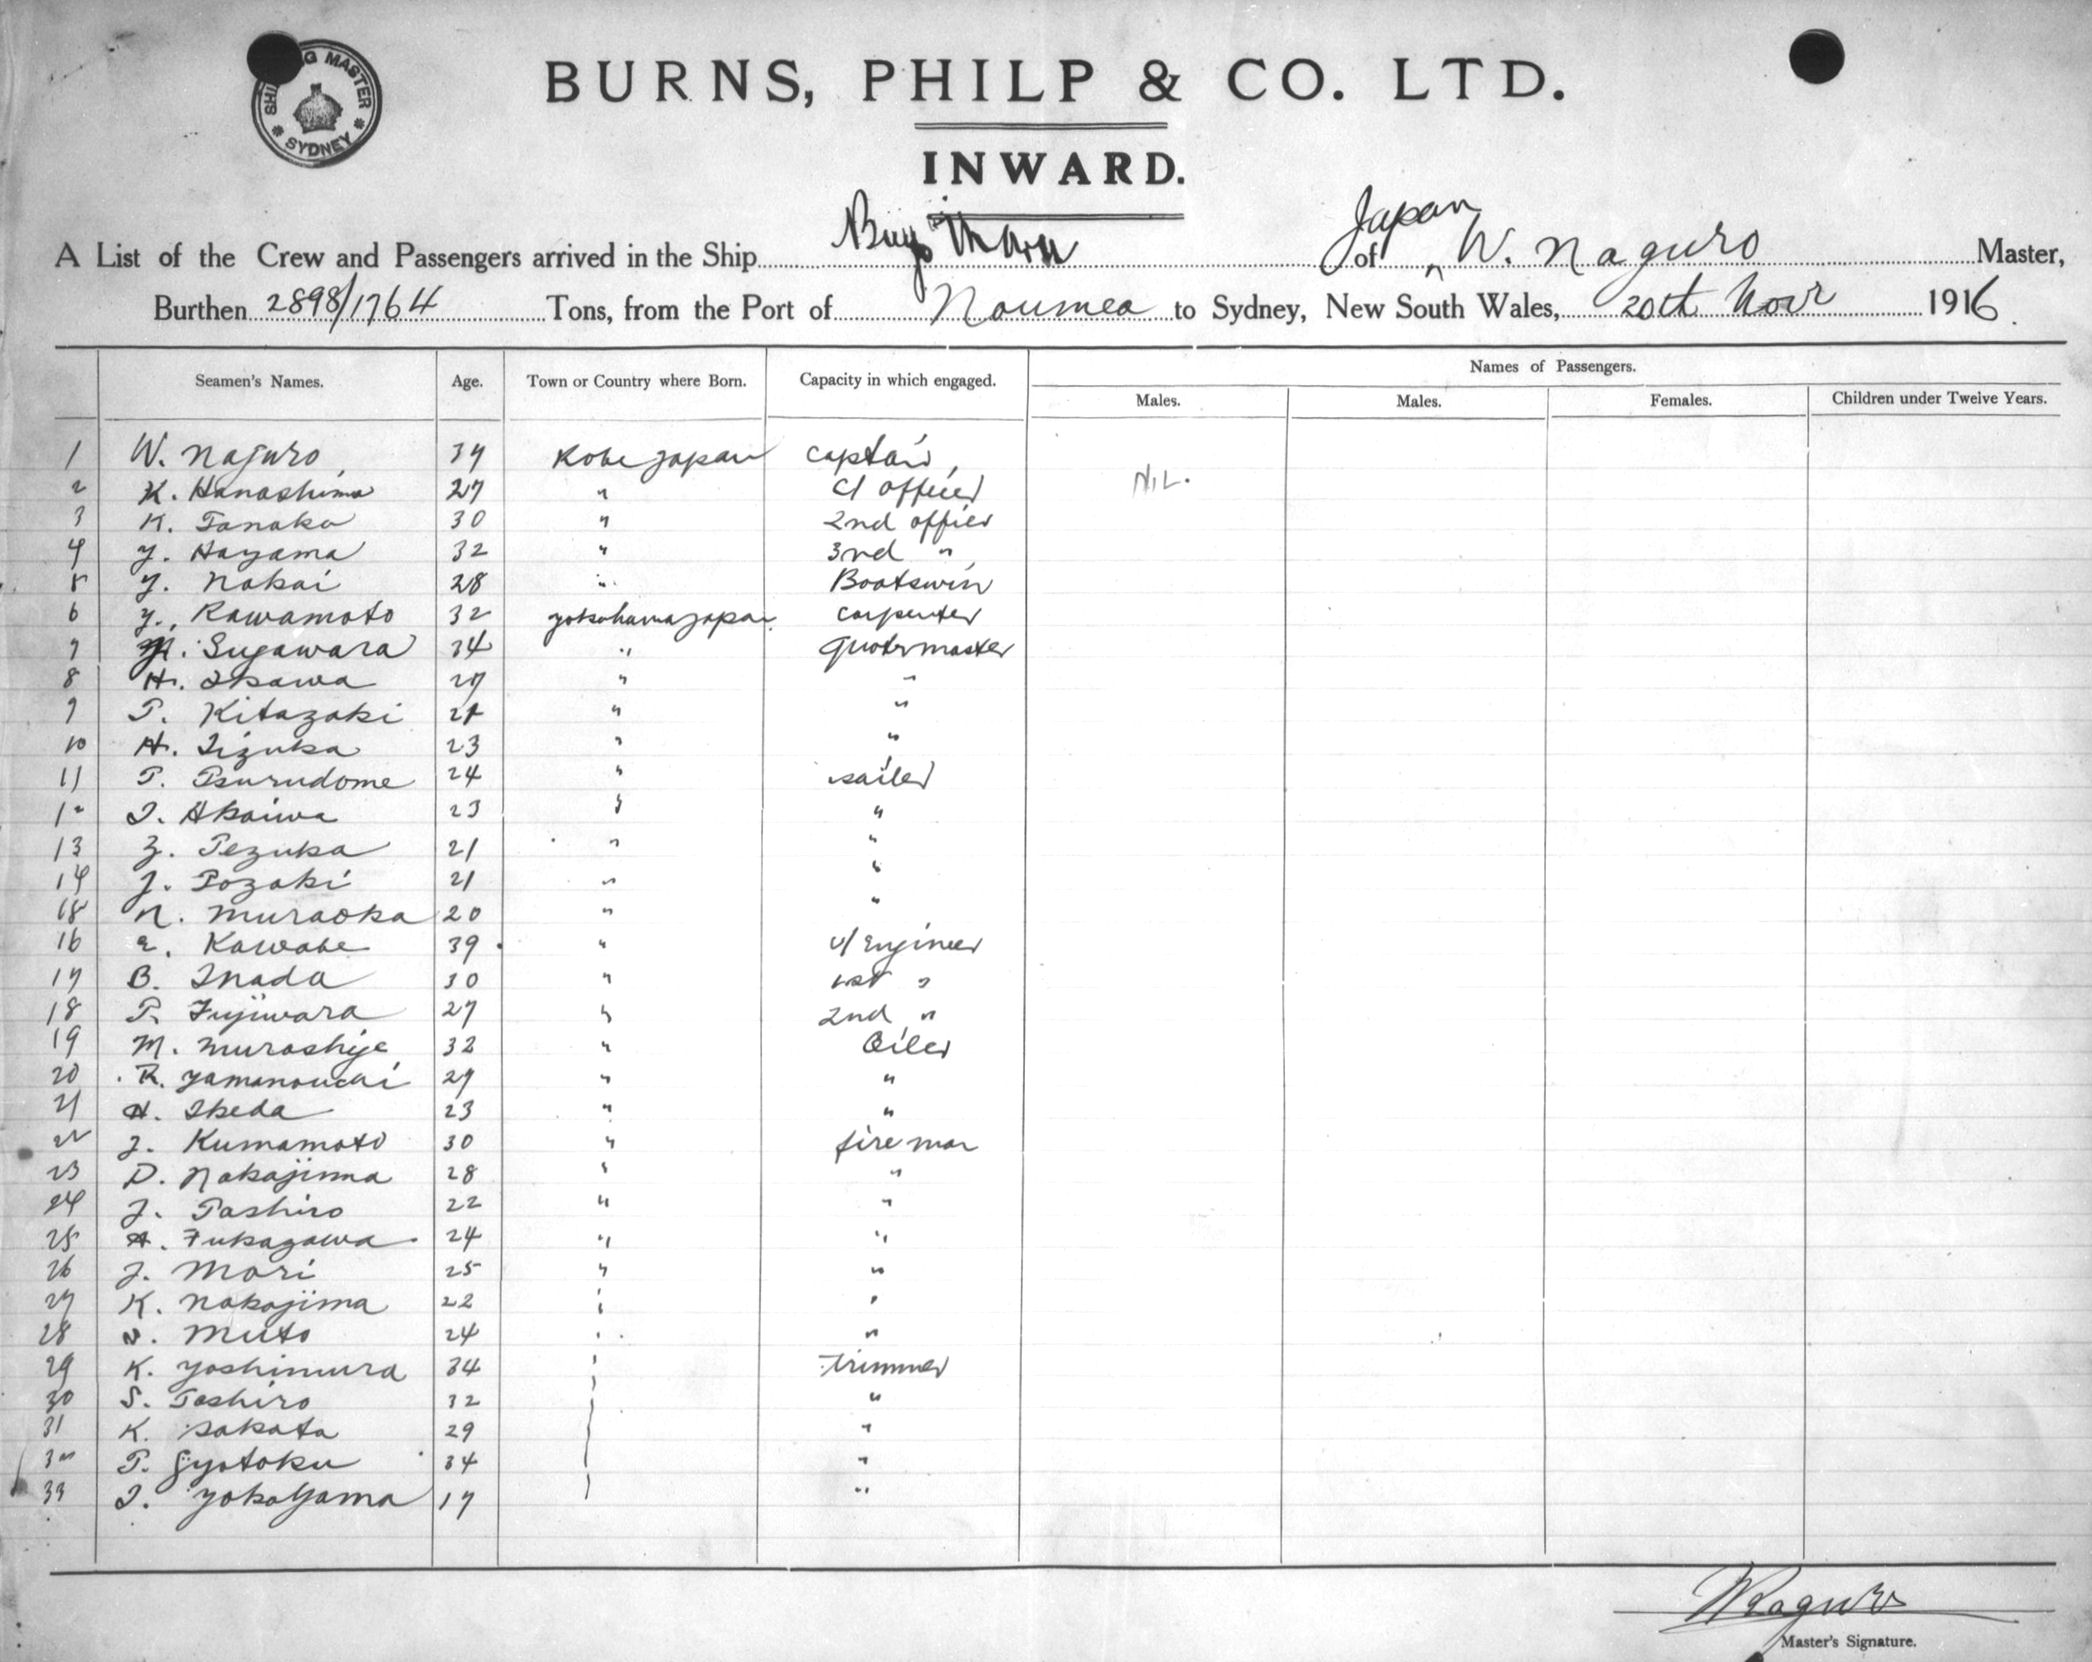 SHIPPING MASTER SYDNEY
BURNS, PHILP & CO. LTD.
INWARD.
Japan
A List of the Crew and Passengers arrived in the Ship Bingo Maru of W. Naguro Master,
Burthen 2898/1764 Tons, from the Port of Noumea to Sydney, New South Wales, 20th Novr 1916.
Names of Passengers.
Seamen's Names. Age. Town or Country where Born. Capacity in which engaged.
Males. Males. Females. Children under Twelve Years.
1 W. Naguro, 39 Kobe Japan Captain,
Nil.
2 K. Hanashima 27 " c/ officer
3 K. Tanaka 30 " 2nd officer
4 Y. Hayama 32 " 3rd "
5 Y. Nakai 28 " Boatswin
6 Y. Kawamoto 32 Yokohama Japan carpenter
7 Sugawara 34 " Quotermaster
8 H. Ikawa 27 " "
9 T. Kitazaki 21 " "
10 H. Iizuka 23 " "
11 T. Tsurudome 24 " sailer
12 I. Akaiwa 23 " "
13 Z. Tezuka 21 " "
14 J. Tozaki 21 " "
15 N. Muraoka 20 " "
16 E. Kawabe 39 " c/ Engineer
17 B. Inada 30 " 1st "
18 T. Fujiwara 27 " 2nd "
19 M. Murashige 32 " Oiler
20 K. Yamanouchi 29 " "
21 H. Ikeda 23 " "
22 J. Kumamoto 30 " fireman
23 D. Nakajima 28 " "
24 J. Tashiro 22 " "
25 H. Fukagawa 24 " "
26 J. Mori 25 " "
27 K. Nakajima 22 " "
28 N. Muto 24 " "
29 K. Yoshimura 34 " trimmer
30 S. Tashiro 32 "
31 K. Sakata 29 "
32 T. Gyotoku 34 "
33 I. Yokoyama 17 "
W Naguro
Master's Signature.